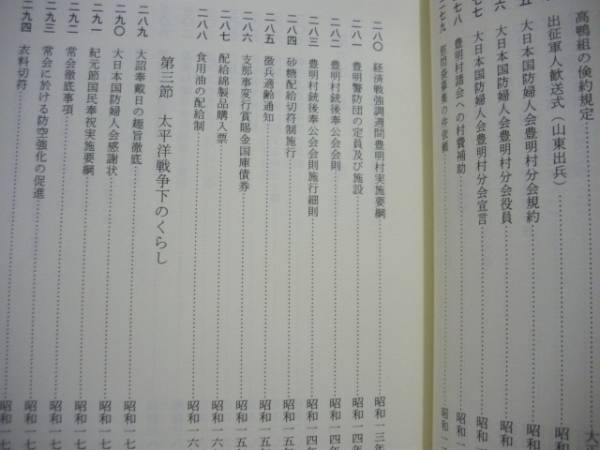 高鴨組の倹約規定 大正
出征軍人歓送式（山東出兵）
五 大日本国防婦人会豊明村分会規約
六 大日本国防婦人会豊明村分会役員
七七 大日本国防婦人会豊明村分会宣言 昭和
七八 豊明村議会への村費補助 昭和一
二七九 昭和一
二八〇 経済戦強調週間豊明村実施要綱 昭和一三年
二八一 豊明警防団の定員及び施設 昭和一四年
二八二 豊明村銃後奉公会会則 昭和一四年
二八三 豊明村銃後奉公会会則施行細則 昭和一四年
二八四 砂糖配給切符制施行 昭和一五年
二八五 徴兵適齢通知 昭和一五年
二八六 支那事変行賞賜金国庫債券 昭和一五年
二八七 配給綿製品購入票 昭和一六
二八八 食用油の配給制 昭和一六
第三節 太平洋戦争下のくらし
二八九 大詔奉戴日の趣旨徹底 昭和一七
二九〇 大日本国防婦人会感謝状 昭和一七
二九一 紀元節国民奉祝実施要綱 昭和一七
二九二 常会徹底事項 昭和一七
二九三 常会に於ける防空強化の促進 昭和一七
二九四 衣料切符 昭和一七